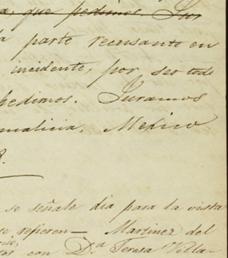 a, que pedimos. Jur
parte recusante en
incidente, por ser todo
pedimos. Juramos
malicia. Mexico
8.
se señale dia para la vista
se refieren — Martinez del
con D.ª Teresa Villa-